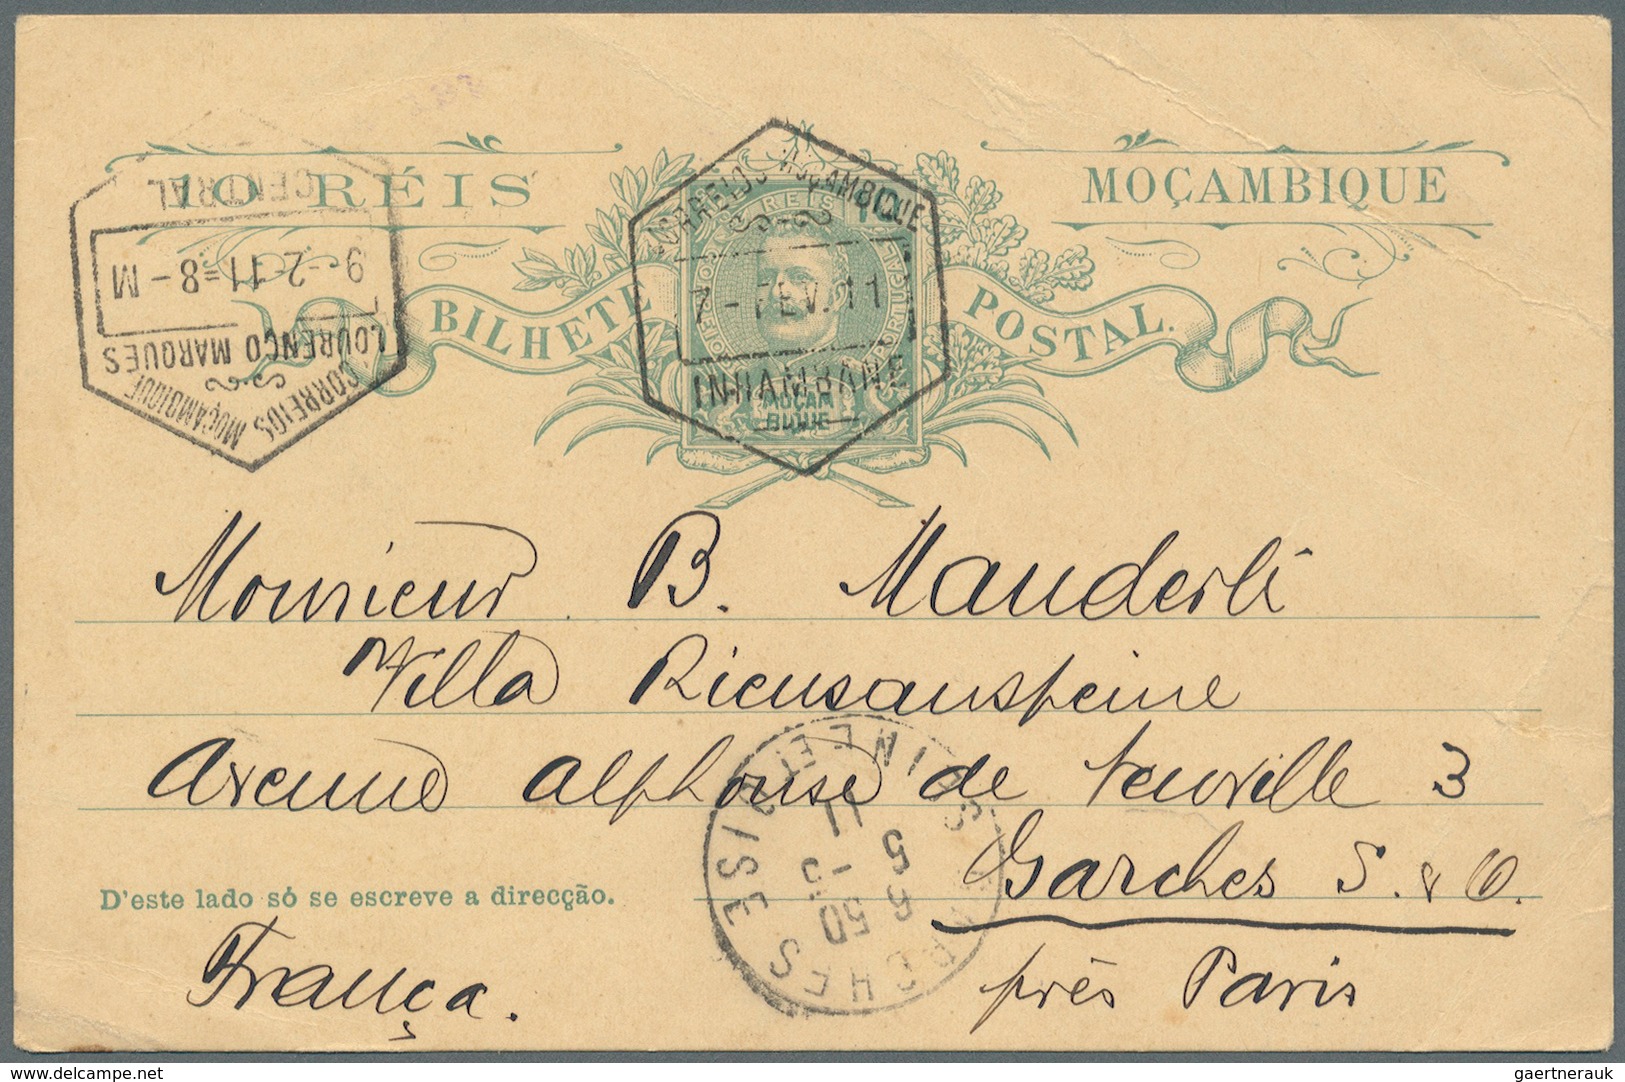 10 RÉIS
MOÇAMBIQUE
BILHETE POSTAL.
CORREIOS MOÇAMBIQUE
7-FEV.11
INHAMBANE
RÉIS
MOÇAM
BIQUE
CORREIOS MOÇAMBIQUE
LOURENÇO MARQUES
9-2.11=8-M
CENTRAL
Monsieur B. Manderli
Villa
Avenue Alphonse de Neuville 3
Garches S. & O.
D'este lado só se escreve a direcção.
près Paris
França.
GARCHES
SEINE ET OISE
6 50
5 -5
11
www.delcampe.net
gaertnerauk